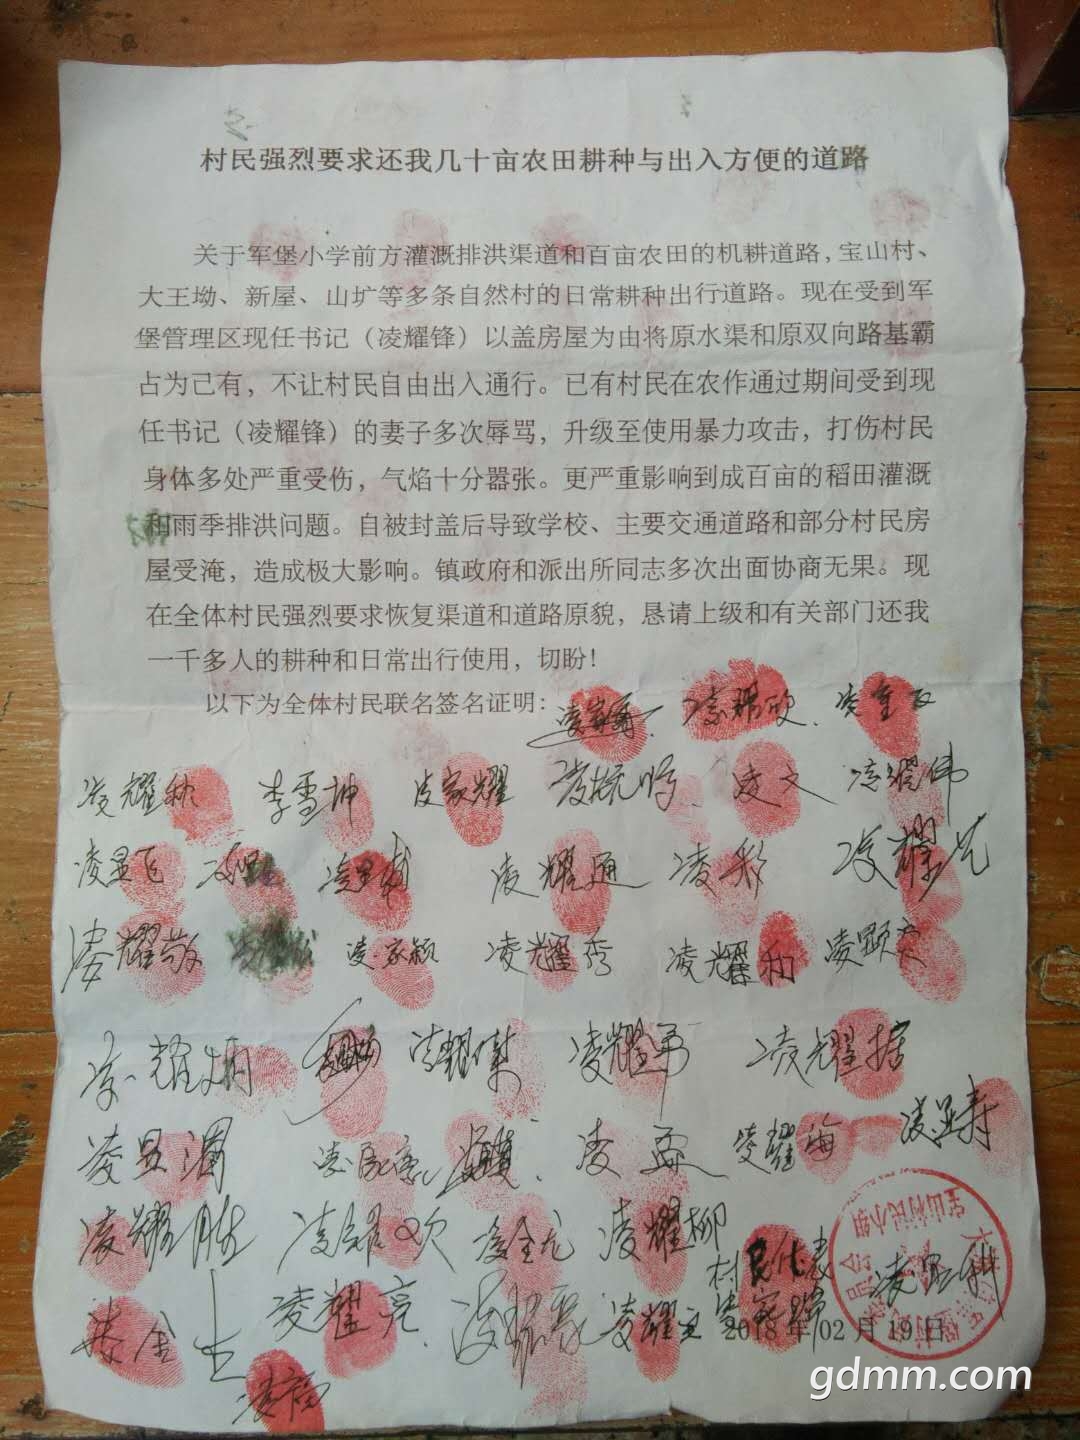 村民强烈要求还我几十亩农田耕种与出入方便的道路
关于军堡小学前方灌溉排洪渠道和百亩农田的机耕道路，宝山村、
大王坳、新屋、山圹等多条自然村的日常耕种出行道路。现在受到军
堡管理区现任书记（凌耀锋）以盖房屋为由将原水渠和原双向路基霸
占为己有，不让村民自由出入通行。已有村民在农作通过期间受到现
任书记（凌耀锋）的妻子多次辱骂，升级至使用暴力攻击，打伤村民
身体多处严重受伤，气焰十分嚣张。更严重影响到成百亩的稻田灌溉
和雨季排洪问题。自被封盖后导致学校、主要交通道路和部分村民房
屋受淹，造成极大影响。镇政府和派出所同志多次出面协商无果。现
在全体村民强烈要求恢复渠道和道路原貌，恳请上级和有关部门还我
一千多人的耕种和日常出行使用，切盼！
以下为全体村民联名签名证明：
凌耀秋 李雪坤 凌家耀 凌文 凌耀伟
凌显飞 凌耀通 凌彩 凌耀光
凌耀敬 凌家颖 凌耀秀 凌耀和 凌显文
凌耀炳 凌耀弟 凌耀据
凌孟 凌耀海 凌显寿
凌耀胜 凌耀欢 凌金龙 凌耀柳
村民代表
凌金 凌耀亮 凌耀文
2018年02月19日
宝山村民小组
gdmm.com